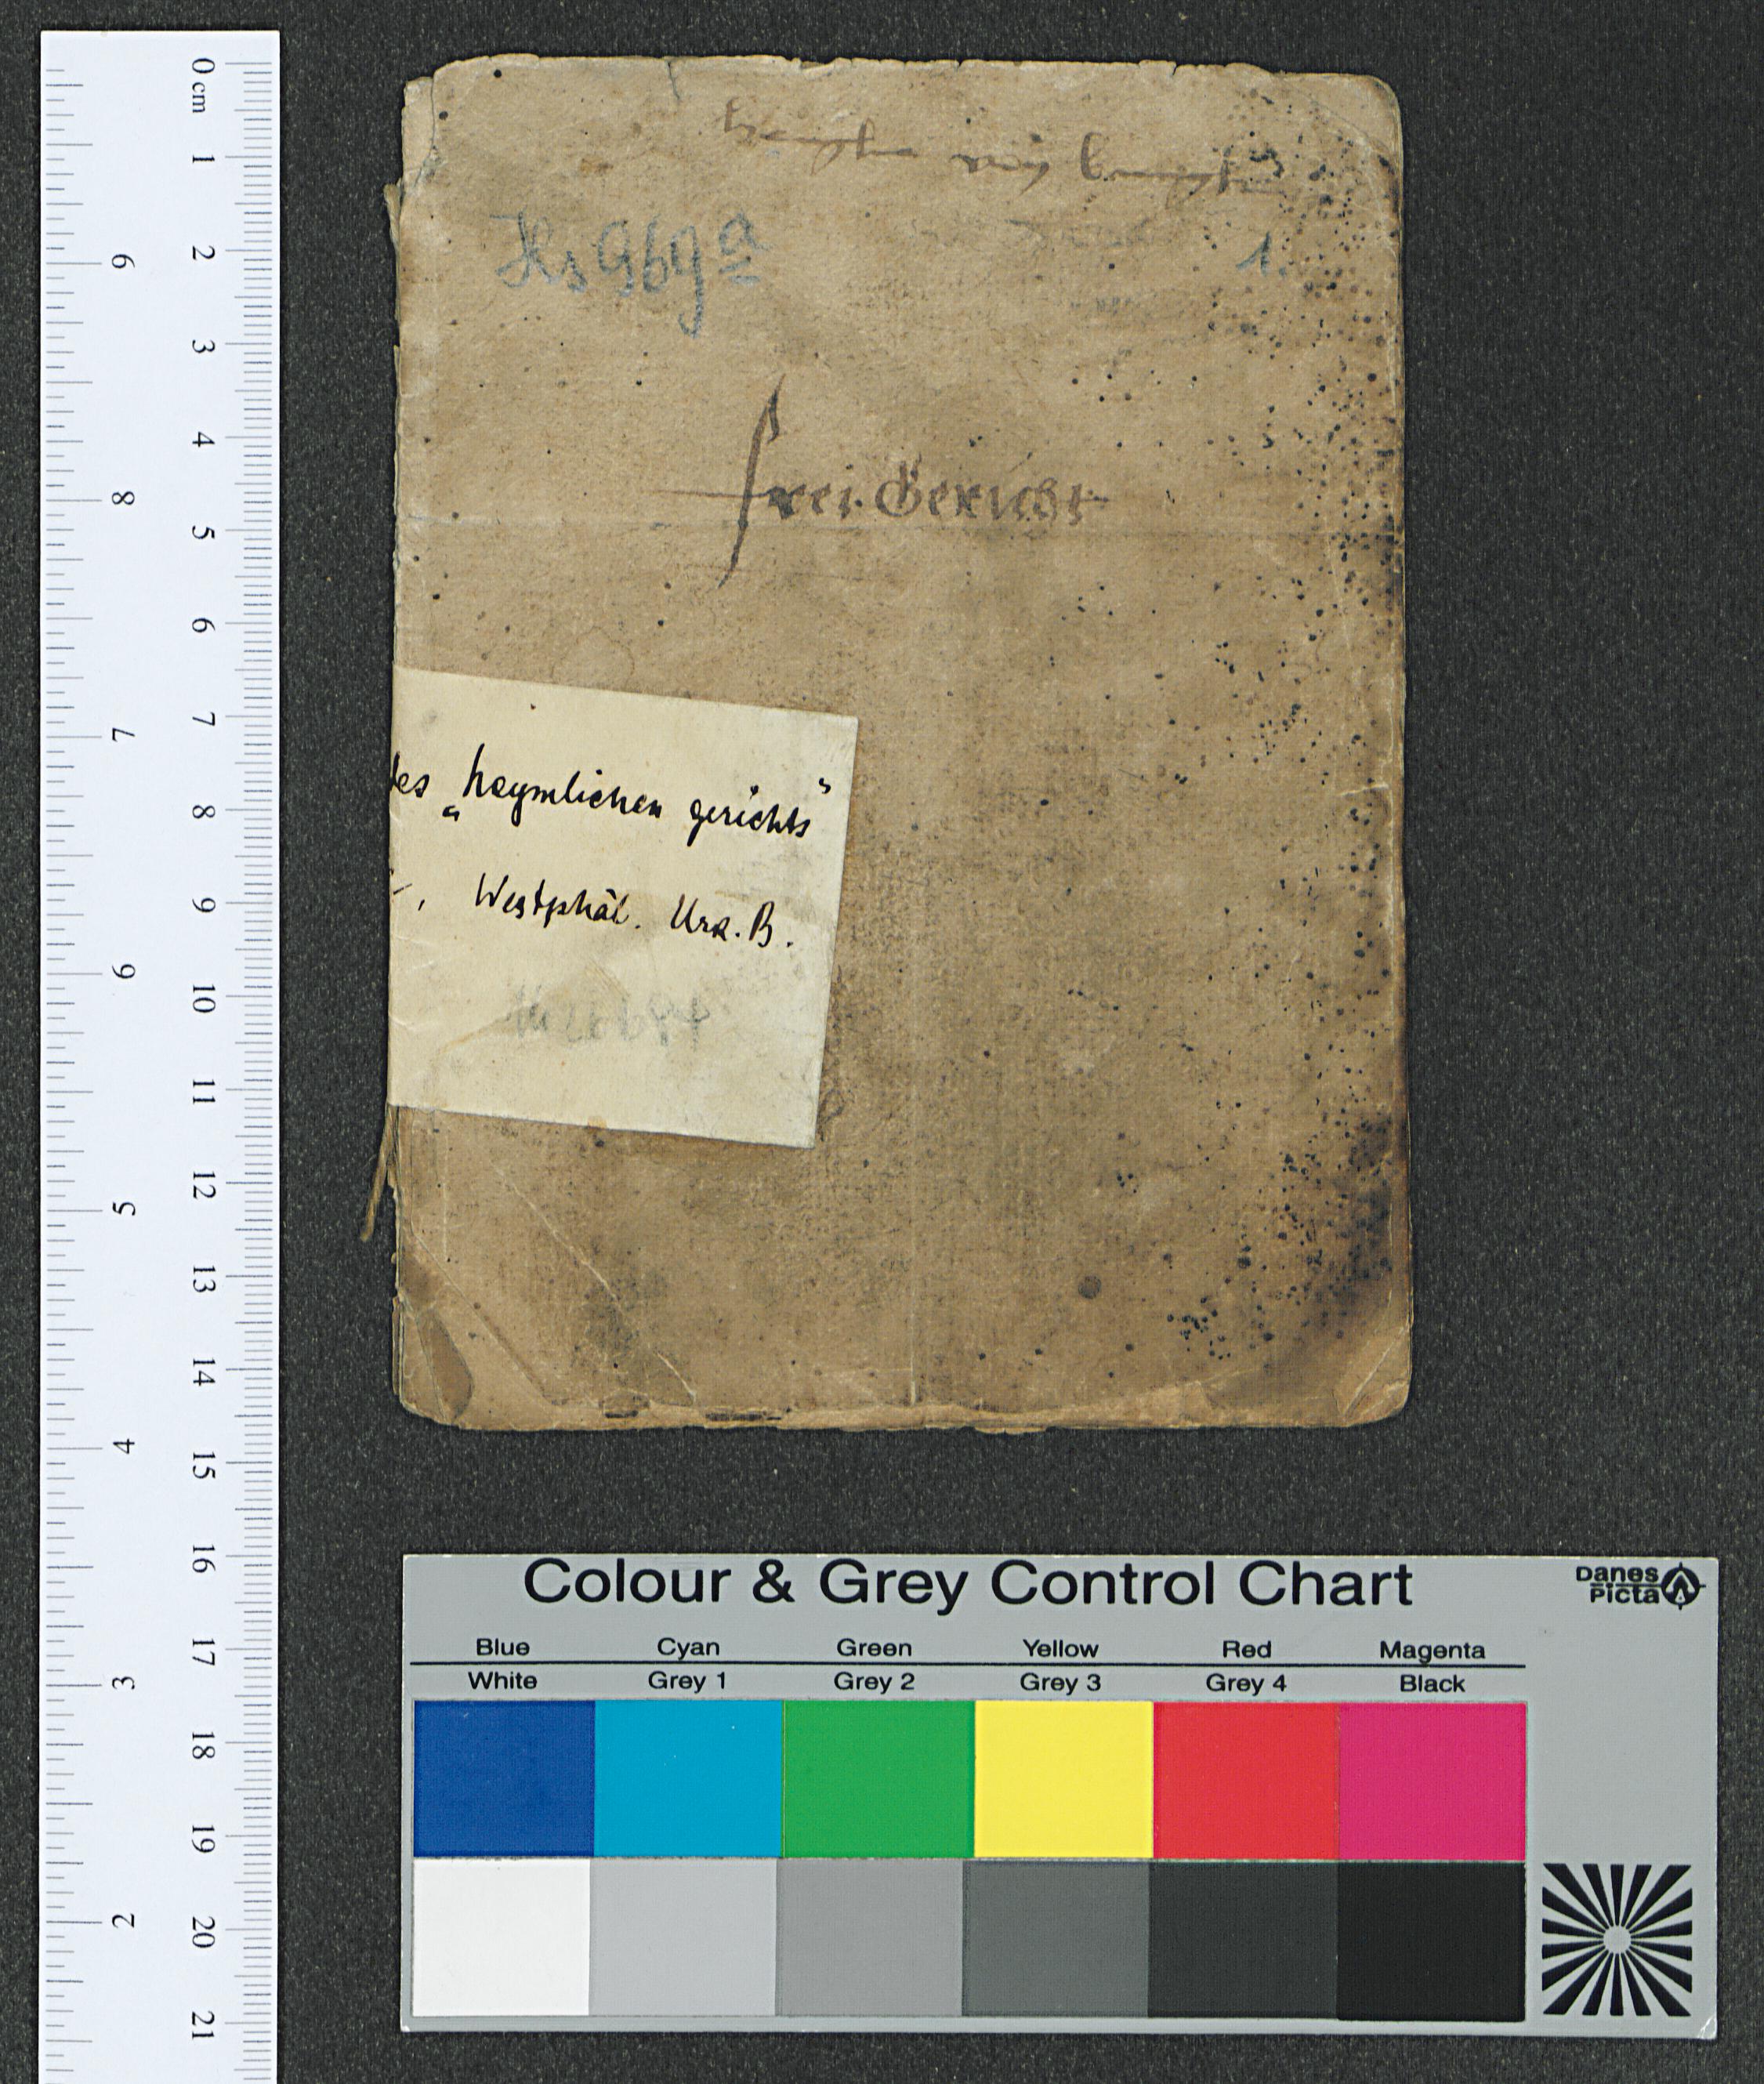 Hs 969 a
1.
frei Gericht
des „heymlichen gerichts"
, Westphäl. Urk. B.
Colour & Grey Control Chart
Danes
Picta
Blue Cyan Green Yellow Red Magenta
White Grey 1 Grey 2 Grey 3 Grey 4 Black
0 cm 1 2 3 4 5 6 7 8 9 10 11 12 13 14 15 16 17 18 19 20 21
9 8 7 6 5 4 3 2